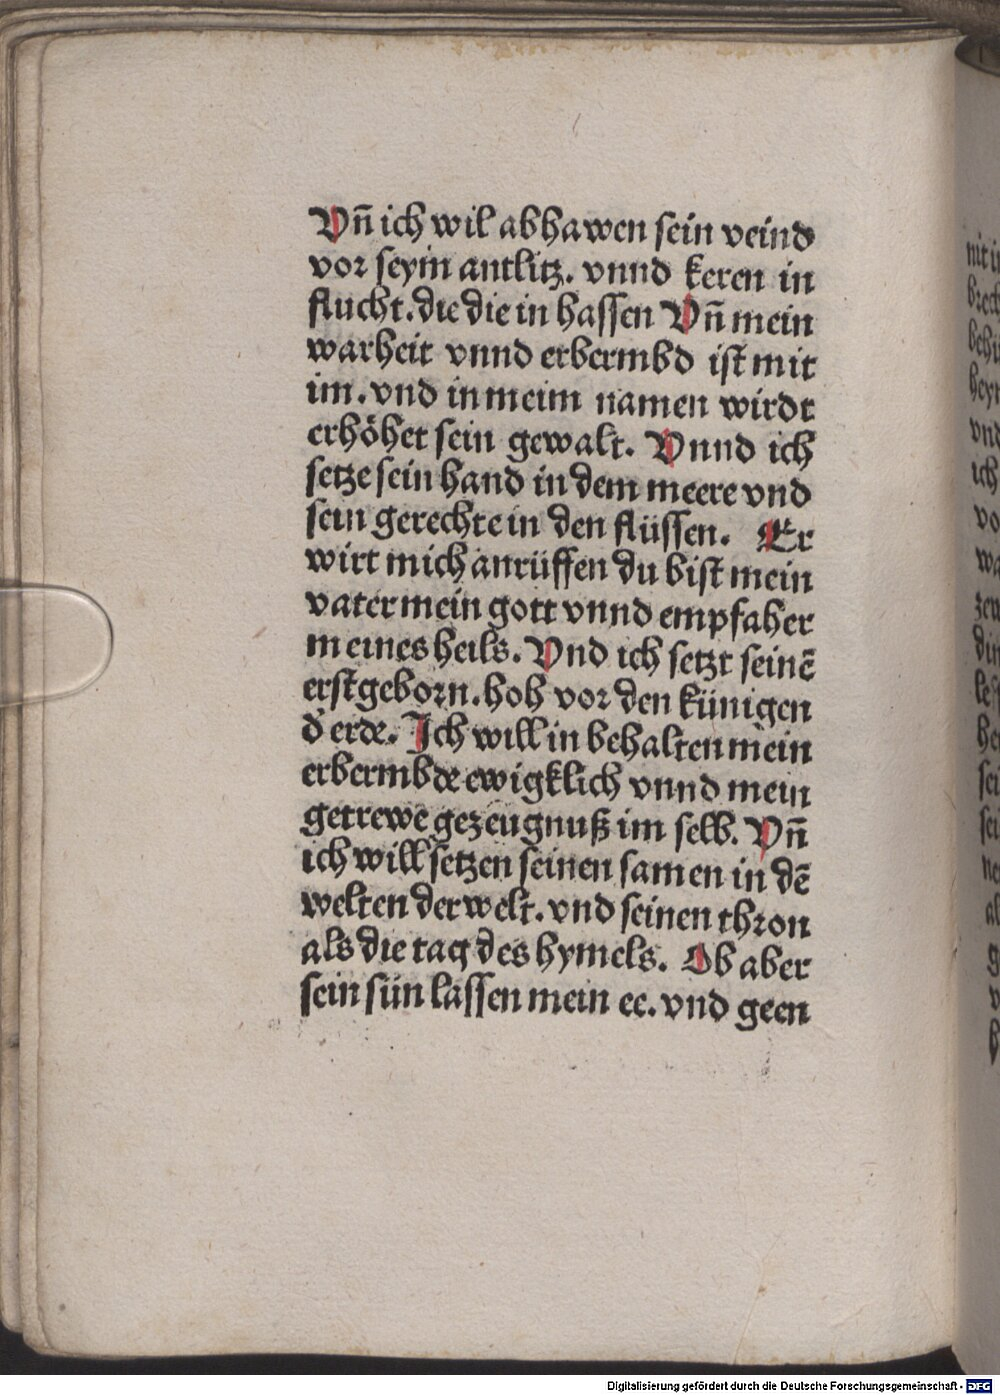 Vn̄ ich wil abhawen sein veind
vor seyin antlitz. vnnd keren in
flucht. die die in hassen Vn̄ mein
warheit vnnd erbermbd ist mit
im. vnd in meim namen wirdt
erhöhet sein gewalt. Vnnd ich
setze sein hand in dem meere vnd
sein gerechte in den flüssen. Er
wirt mich anrüffen du bist mein
vater mein gott vnnd empfaher
meines heils. Vnd ich setzt seinē
erstgeborn. hoh vor den künigen
d̕ erde. Ich will in behalten mein
erbermbde ewigklich vnnd mein
getrewe gezeugnuß im selb. Vn̄
ich will setzen seinen samen in dē
welten der welt. vnd seinen thron
als die tag des hymels. Ob aber
sein sün lassen mein ee. vnd geen
Digitalisierung gefördert durch die Deutsche Forschungsgemeinschaft - DFG